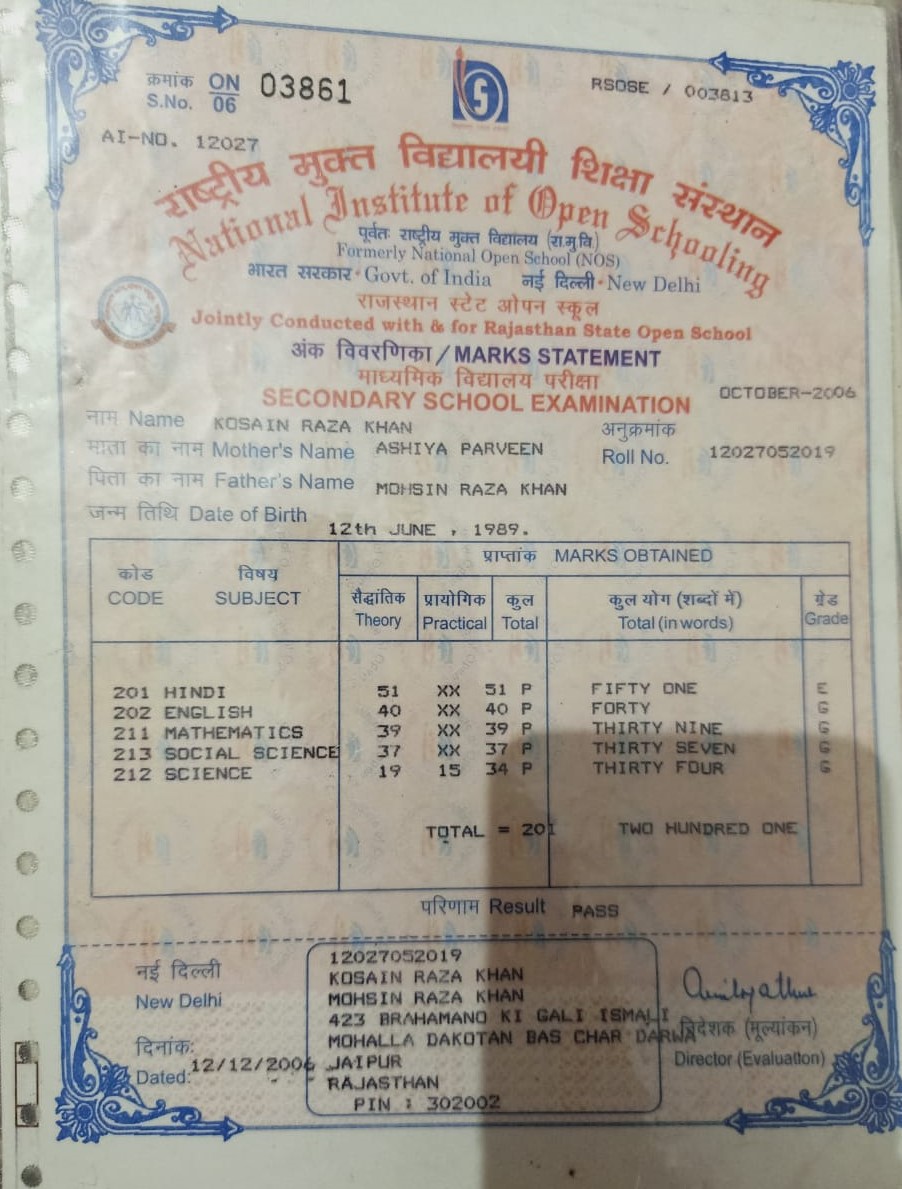 क्रमांक ON 03861
S.No. 06
RSOSE / 003813
AI-NO. 12027
राष्ट्रीय मुक्त विद्यालयी शिक्षा संस्थान
National Institute of Open Schooling
पूर्वतः राष्ट्रीय मुक्त विद्यालय (रा.मु.वि)
Formerly National Open School (NOS)
भारत सरकार · Govt. of India नई दिल्ली · New Delhi
राजस्थान स्टेट ओपन स्कूल
Jointly Conducted with & for Rajasthan State Open School
अंक विवरणिका / MARKS STATEMENT
माध्यमिक विद्यालय परीक्षा
SECONDARY SCHOOL EXAMINATION OCTOBER-2006
नाम Name KOSAIN RAZA KHAN अनुक्रमांक
माता का नाम Mother's Name ASHIYA PARVEEN Roll No. 12027052019
पिता का नाम Father's Name MOHSIN RAZA KHAN
जन्म तिथि Date of Birth 12th JUNE , 1989.
प्राप्तांक MARKS OBTAINED
कोड विषय सैद्धांतिक प्रायोगिक कुल कुल योग (शब्दों में) ग्रेड
CODE SUBJECT Theory Practical Total Total (in words) Grade
201 HINDI 51 XX 51 P FIFTY ONE E
202 ENGLISH 40 XX 40 P FORTY G
211 MATHEMATICS 39 XX 39 P THIRTY NINE G
213 SOCIAL SCIENCE 37 XX 37 P THIRTY SEVEN G
212 SCIENCE 19 15 34 P THIRTY FOUR G
TOTAL = 201 TWO HUNDRED ONE
परिणाम Result PASS
नई दिल्ली
New Delhi
दिनांक:
Dated: 12/12/2006
12027052019
KOSAIN RAZA KHAN
MOHSIN RAZA KHAN
423 BRAHAMANO KI GALI ISMALI
MOHALLA DAKOTAN BAS CHAR DARWA
JAIPUR
RAJASTHAN
PIN : 302002
निदेशक (मूल्यांकन)
Director (Evaluation)